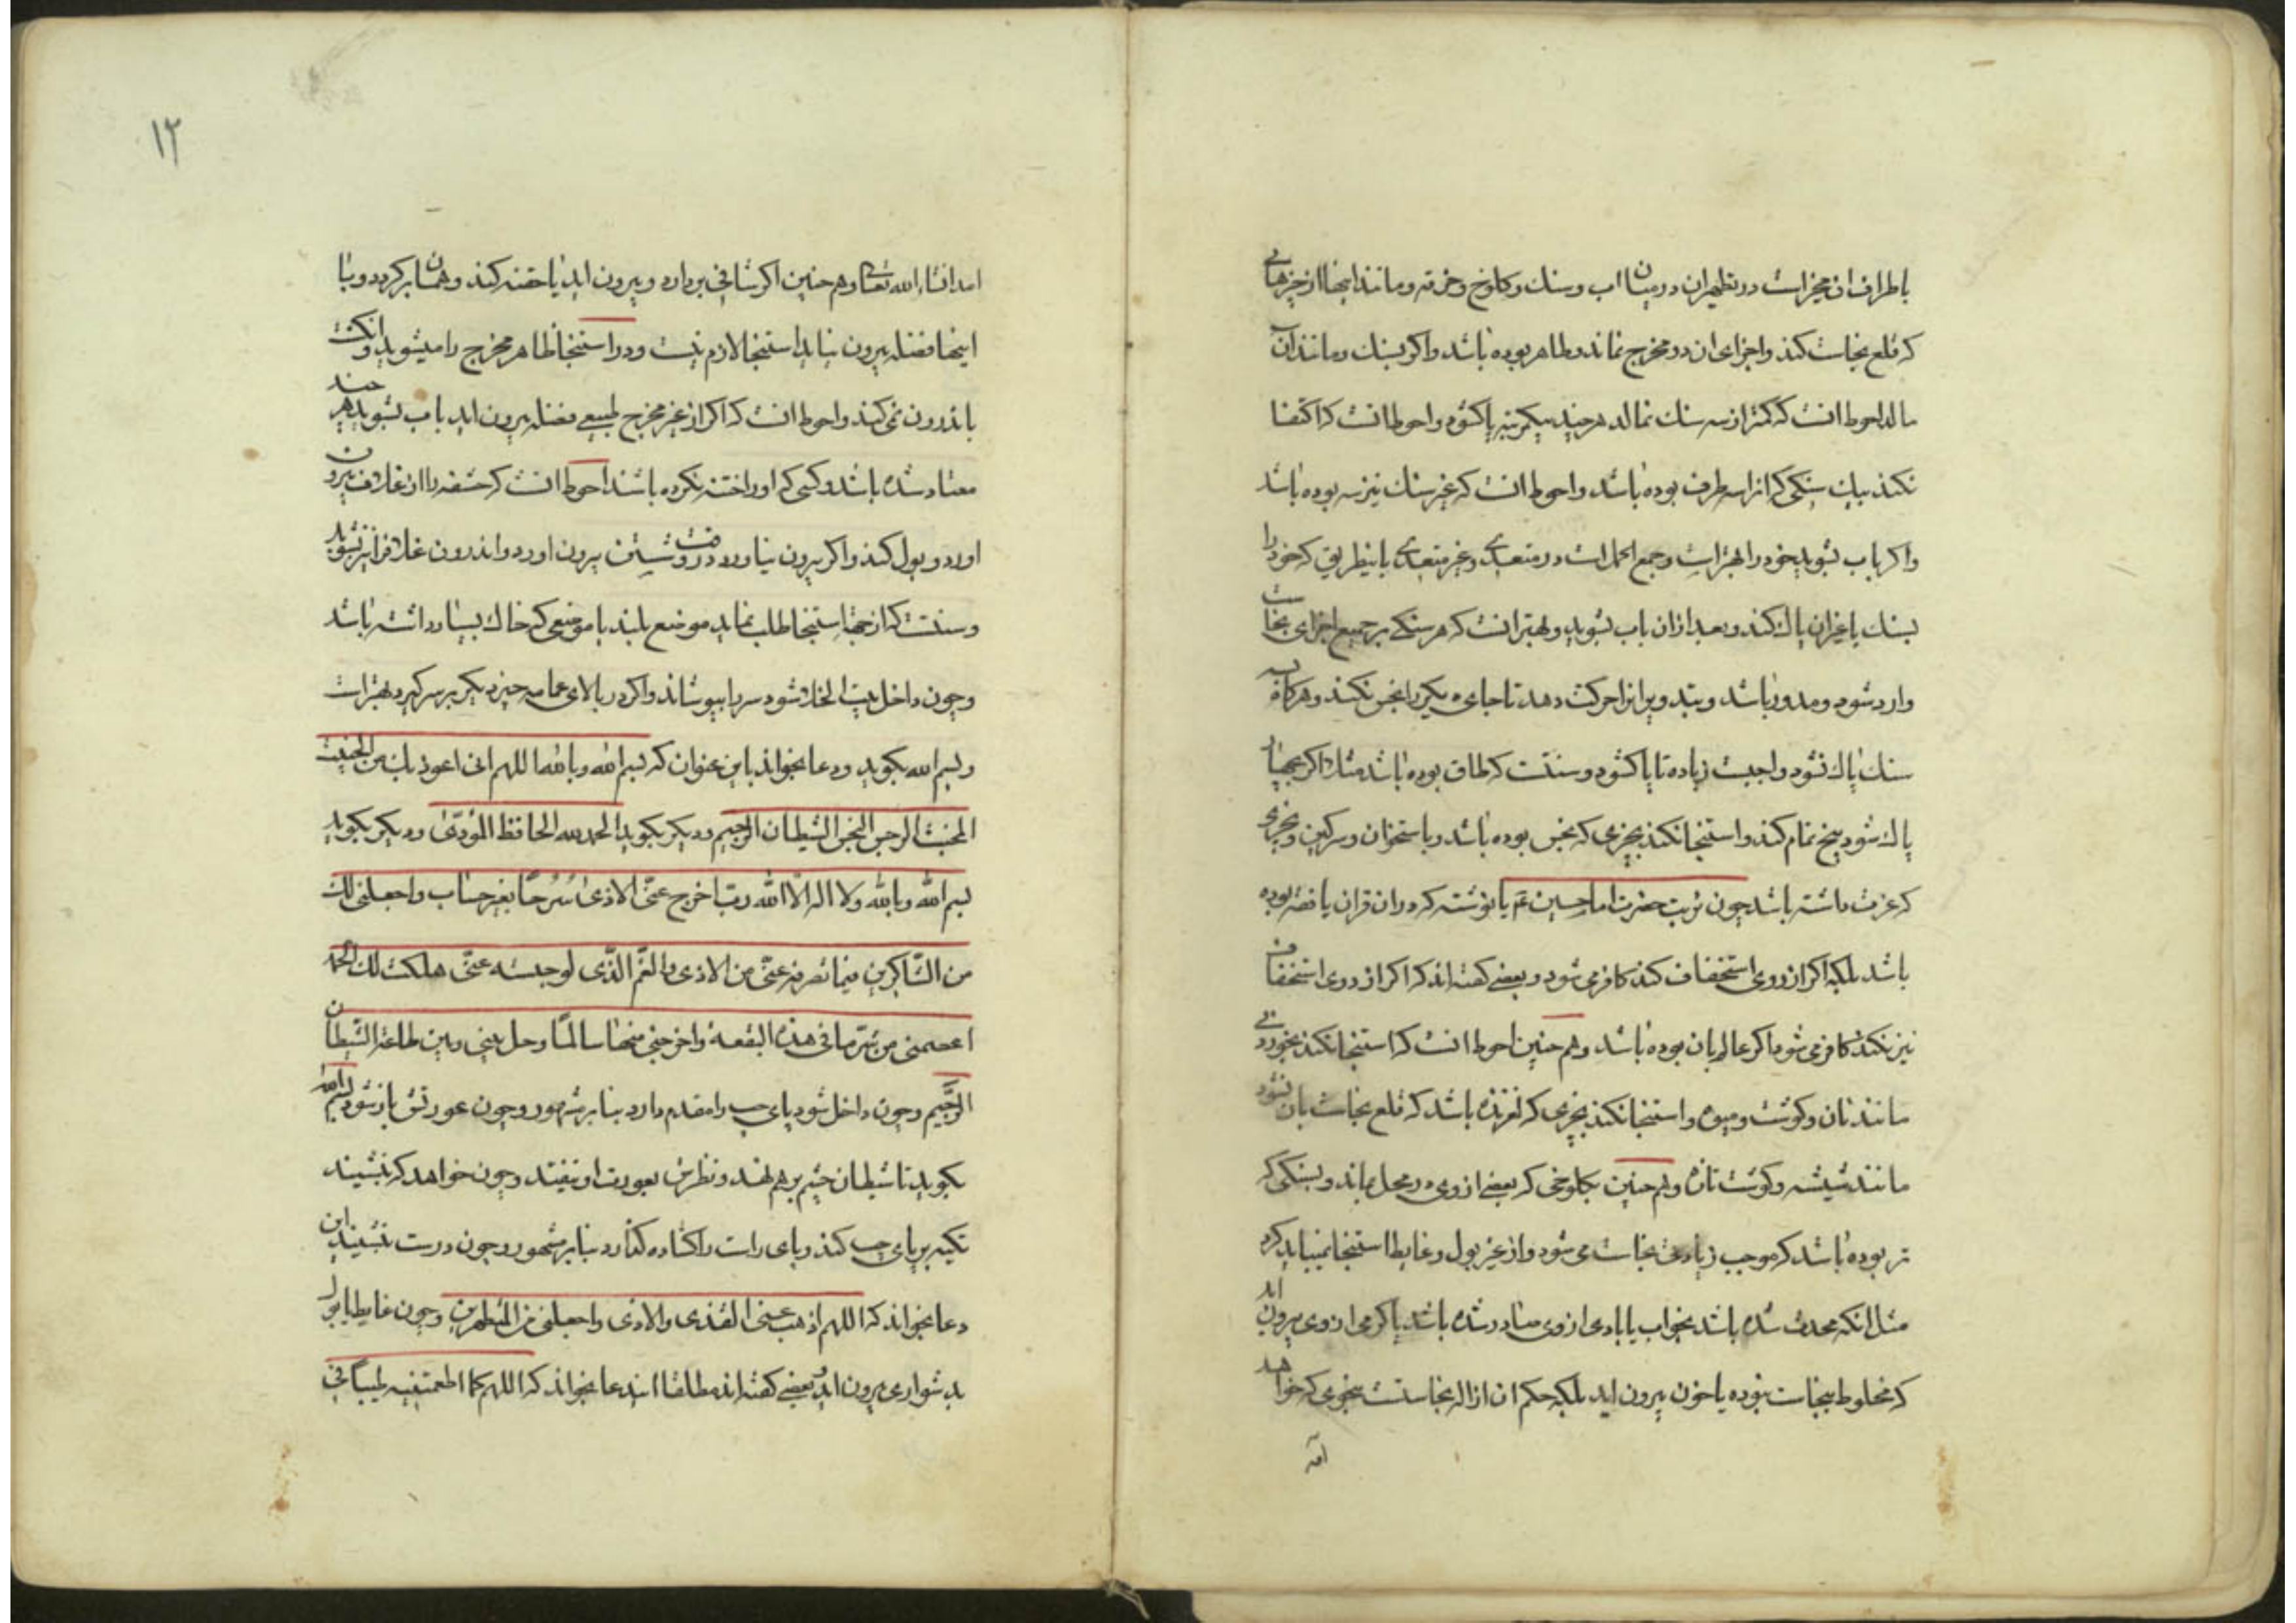 باطراف ان مخیرات در تطهیر ان در میان اب و سنك و کلوخ و خرقه و مانند اینها از چیزهائی
که قلع نجاست کند و اجزای ان در مخرج نماند و طاهر بوده باشد و اکر بسنك و مانند ان
مالد احوط انست که کمتر از سه سنك نمالد هر چند بیکمرتبه پاکشود و احوط انست که اکتفا
نکند بیك سنکی که انرا سه طرف بوده باشد و احوط انست که غیر سنك نیز سه بوده باشد
و اکر باب بشوید خود را بهتراست و جمع اکمل است در متعدی و غیر متعدی باینطریق که خود را
بسنك یا غیر ان پاك کند و بعد از ان باب بشوید و بهتر انست که هر سنکی بر جمیع اجزای نجاست
وارد شود و مدور باشد و بتدویر انرا حرکت دهد تا جای دیکر را نجس نکند و هرکاه بسه
سنك پاك نشود واجبست زیاده تا پاکشود و سنتست که طاق بوده باشد مثلا اکر بچهار
پاك شود بپنج تمام کند و استنجا نکند بچیزی که نجس بوده باشد و باستخوان و سرکین و بچیزی
که عزت داشته باشد چون تربت حضرت امام حسین عم یا نوشته که در ان قران یا فقه بوده
باشد بلکه اکر از روی استخفاف کند کافر می شود و بعضی کفته اند که اکر از روی استخفاف
نیز نکند کافر می شود اکر عالم بان بوده باشد و هم چنین احوط انست که استنجا نکند بخوردنی
مانند نان و کوشت و میوه و استنجا نکند بچیزی که لغزنده باشد که قلع نجاست بان نشود
مانند شیشه و کوشت تازه و هم چنین بکلوخی که بعضی از وی در محل بماند و بسنکی که
تر بوده باشد که موجب زیادتی نجاست می شود و از غیر بول و غایط استنجا نمیباید کرد
مثل انکه محدث شده باشد بخواب یا بادی از وی صادر شده باشد یا کرمی از وی بیرون اید
که مخلوط بنجاست نبوده یا خون بیرون اید بلکه حکم ان ازاله نجاستست بنحوی که خواهد
امد
۱۲
امد انشاء الله تعالی و هم چنین اکر شافی بردارد و بیرون اید یا حقنه کند و همان بر کردد و با
اینها فضله بیرون نیاید استنجا لازم نیست و در استنجا ظاهر مخرج را میشوید و انکشت
باندرون نمی کند و احوط انست که اکر از غیر مخرج طبیعی فضله بیرون اید باب بشوید هر چند
معتاد شده باشد و کسی که او را ختنه نکرده باشند احوط انست که حشفه را از غلاف بیرون
اورد و بول کند و اکر بیرون نیاورد در وقت شستن بیرون اورد و اندرون غلاف را نیز بشوید
و سنتست که از جهة استنجا طلب نماید موضع بلند یا موضعی که خاك بسیار داشته باشد
و چون داخل بیت الخلا شود سر را بپوشاند و اکر در بالای عمامه چیز دیکر بر سر کیرد بهتراست
و بسم الله بکوید و دعا بخواند باین عنوان که بسم الله و بالله اللهم انی اعوذ بك من الخبیث
المخبث الرجس النجس الشیطان الرجیم و دیکر بکوید الحمد لله الحافظ المؤدی و دیکر بکوید
بسم الله و بالله و لا اله الا الله رب اخرج عنی الاذی سرحا بغیر حساب و اجعلنی لك
من الشاکرین فیما تصرفه عنی من الاذی و الغم الذی لو حبسته عنی هلکت لك الحمد
اعصمنی من شر ما فی هذه البقعة و اخرجنی منها سالما و حل بینی و بین طاعة الشیطان
الرجیم و چون داخل شود پای چپ را مقدم دارد بنا بر مشهور و چون عورتش باز شود بسم الله
بکوید تا شیطان چشم بر هم نهد و نظرش بعورت او نیفتد و چون خواهد که بنشیند
تکیه بر پای چپ کند و پای راست را کشاده کذارد بنا بر مشهور و چون درست بنشیند این
دعا بخواند که اللهم اذهب عنی القذی و الاذی و اجعلنی من المتطهرین و چون غایط یا بول
بدشواری بیرون اید و بعضی کفته اند مطلقا ایندعا بخواند که اللهم کما اطعمتنیه طیبا فی